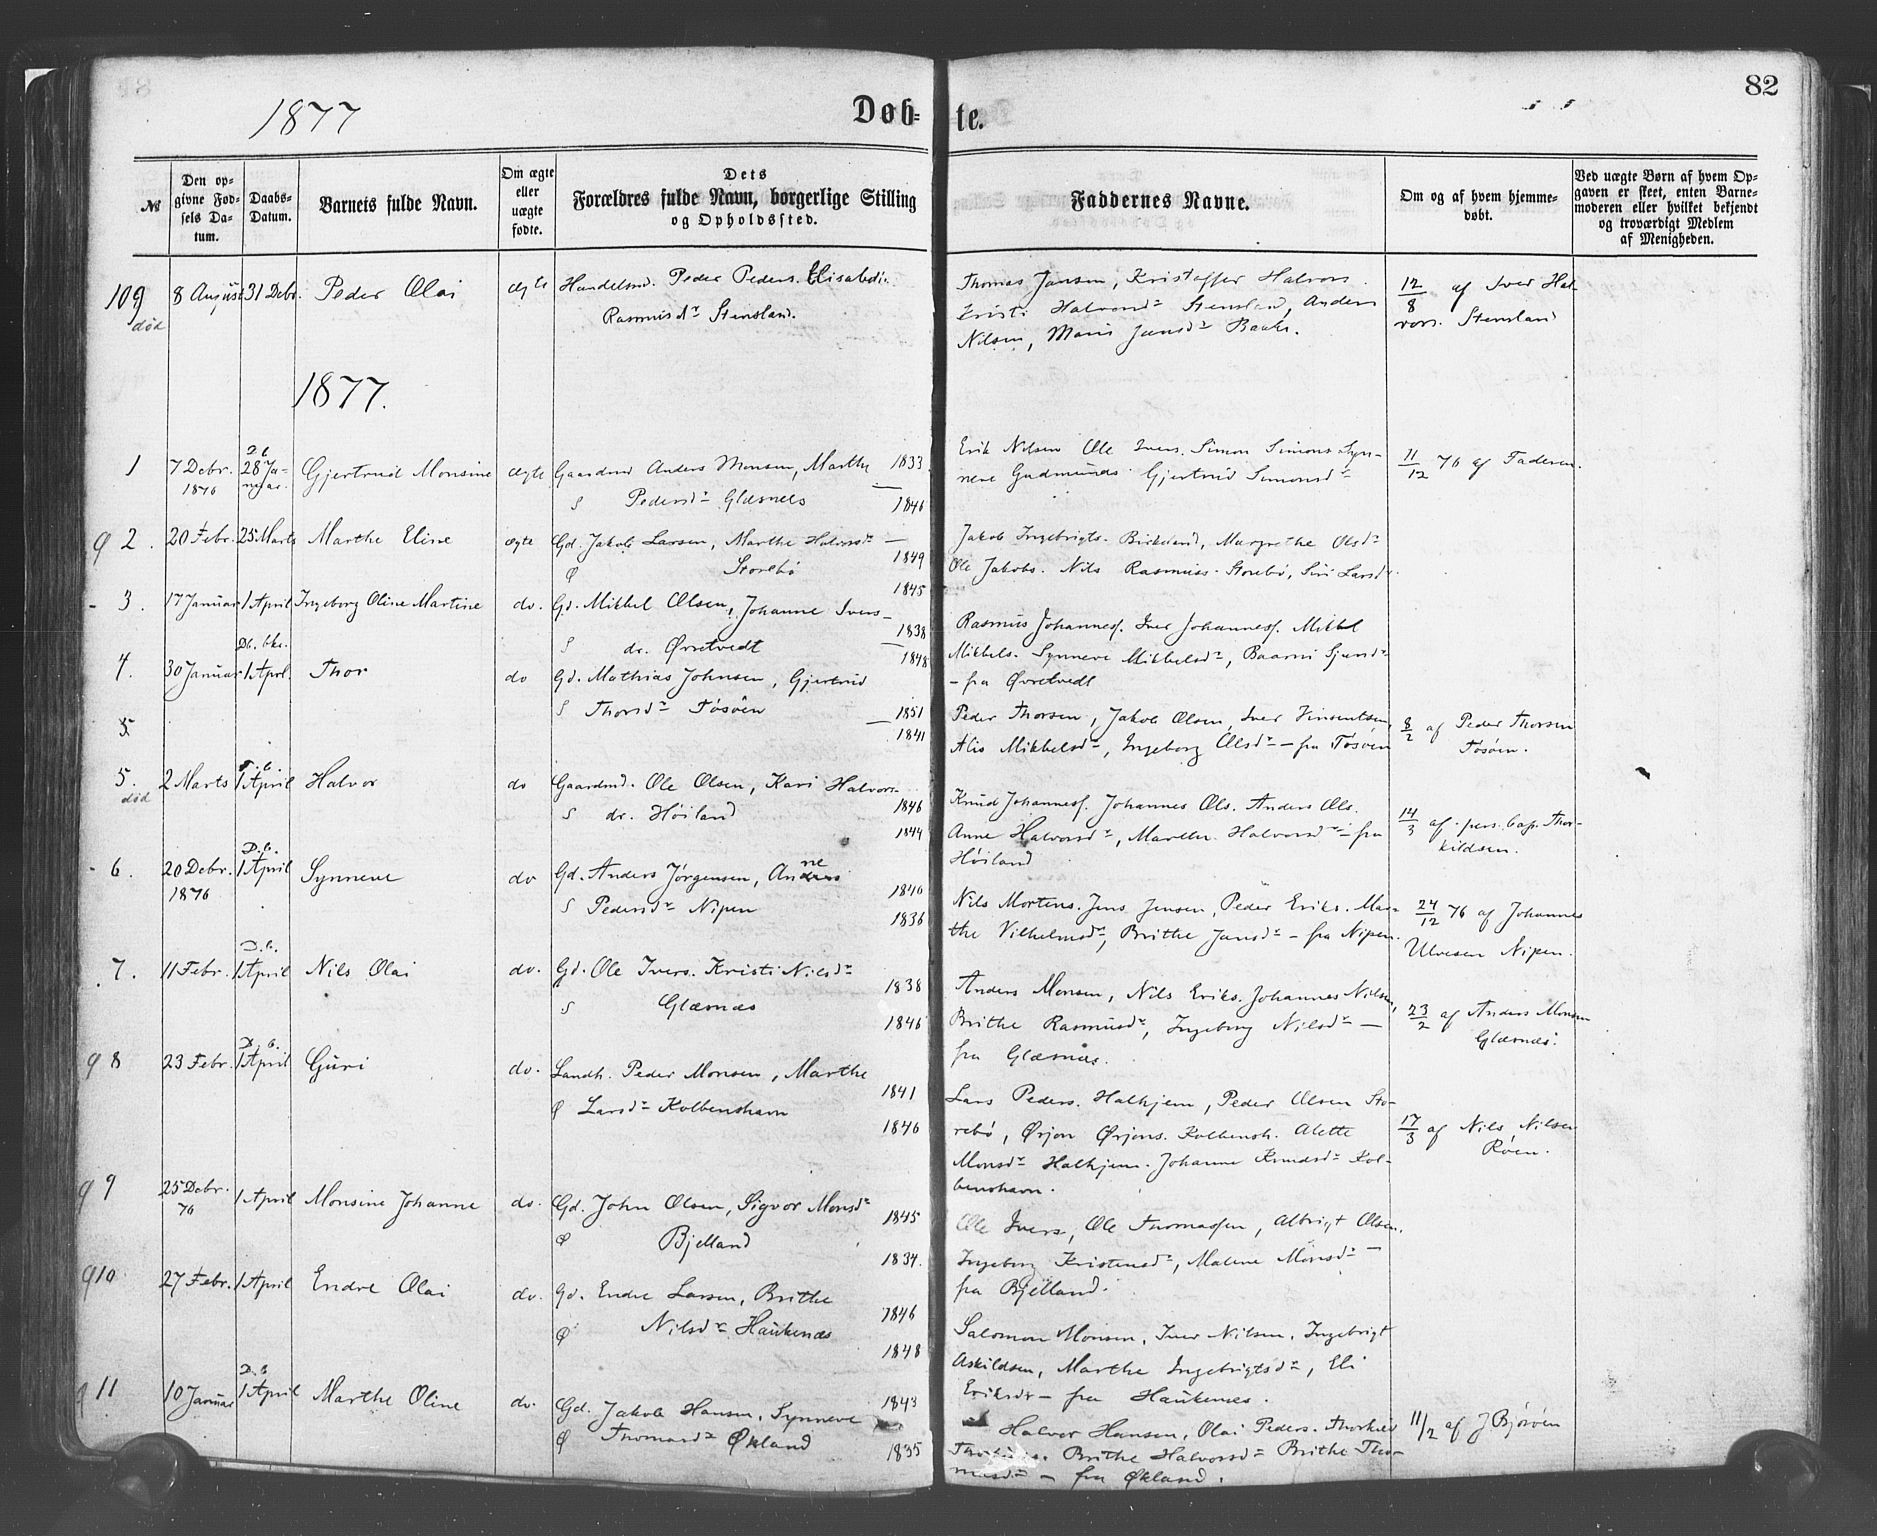 82
1877
Døb=te.
№
Den opgivne Fødsels Datum.
Daabs-Datum.
Barnets fulde Navn.
Om ægte eller uægte fødte.
Dets Forældres fulde Navn, borgerlige Stilling og Opholdssted.
Faddernes Navne.
Om og af hvem hjemmedøbt.
Ved uægte Børn af hvem Opgaven er skeet, enten Barnemoderen eller hvilket bekjendt og troværdigt Medlem af Menigheden.
109 død
8 August
31 Debr.
Peder Olai
ægte
Handelsmd. Peder Peders. Elisabeth
Rasmusdr Stensland.
Thomas Jansen, Kristoffer Halvors.
Kristi Halvorsdr Stensland, Anders
Nilsen, Maris Jansdr
12/8 af Iver Hal-
vors. Stensland
1877.
1
7 Debr. 1876
D.b. 28 Ja-
nuar.
Gjertrud Monsine
ægte
Gaardmd Anders Monsen, Marthe 1833
S Pedersdr Glæsnæs 1846
Erik Nilsen Ole Ivers. Simon Simons. Syn-
neve Gudmunds. Gjertrud Simonsdr
11/12 76 af Faderen.
9 2.
20 Febr.
25 Marts
Marthe Eline
ægte
Gd. Jakob Larsen, Marthe Halvorsdr
Ø Storebø 1849
1845
Jakob Ingebrigts. Birkeland, Margrethe Olsdr
Ole Jakobs. Nils Rasmuss. Storebø, Siri Larsdr
- 3.
17 Januar
1 April
Ingeborg Oline Martine
do.
Gd. Mikkel Olsen, Johanne Ivers-
S dr. Øvretvedt 1838
1848
Rasmus Johannesf. Iver Johannesf. Mikkel
Mikkels. Synneve Mikkelsdr, Baarni Sjursdr
- fra Øvretvedt
4.
30 Januar
1 Aprl.
Thor
do
Gd. Mathias Johnsen, Gjertrud
S Thorsdr Tøsøen 1851
1841
Peder Thorsen, Jakob Olsen, Iver Vinsentsen,
Alis Mikkelsdr, Ingeborg Olsdr - fra Tøsøen
8/2 af Peder Thorsen
Tøsøen.
5.
5. død
2 Marts
D.b. 1 April
Halvor
do
Gaardmd. Ole Olsen, Kari Halvors-
S dr. Høiland 1846
1844
Knud Johannesf. Johannes Ols. Anders Ols.
Anne Halvorsdr, Marthe Halvorsdr - fra
Høiland
14/3 af pers. Cap. Thor-
kildsen.
- 6.
20 Debr. 1876
D.b. 1 April
Synneve
do
Gd. Anders Jørgensen, Anne 1840
S Pedersdr Nipen 1836
Nils Mortens. Jens Jensen, Peder Eriks. Mar-
the Vilhelmsdr, Brithe Jansdr - fra Nipen.
24/12 76 af Johannes
Ulvesen Nipen.
7.
11 Febr.
D.b. 1 April
Nils Olai
do.
Gd. Ole Ivers. Kristi Nilsdr 1838
S Glæsnæs 1846
Anders Monsen, Nils Eriks. Johannes Nilsen,
Brithe Rasmusdr, Ingeborg Nilsdr -
fra Glæsnæs.
23/2 af Anders Monsen
Glæsnæs.
9 8
23 Febr.
D.b. 1 April
Guri
do.
Landh. Peder Monsen, Marthe 1841
Ø Larsdr Kolbenshavn 1846
Lars Peders. Halhjem, Peder Olsen Sto-
rebø, Ørjon Ørjons. Kolbensh. Alette
Monsdr Halhjem. Johanne Knudsdr Kol-
benshavn.
17/3 af Nils Nilsen
Røen.
9 9
25 Debr. 76
1 April
Monsine Johanne
do.
Gd. John Olsen, Sigvor Monsdr 1845
Ø Bjelland 1834.
Ole Ivers, Ole Thomassen, Albrigt Olsen.
Ingeborg Kristensdr, Malene Monsdr -
fra Bjelland.
9 10
27 Febr.
1 April
Endre Olai
do.
Gd. Endre Larsen, Brithe 1846
Ø Nilsdr Haukenæs 1848
Salomon Monsen, Iver Nilsen, Ingebrigt
Askildsen, Marthe Ingebrigtsdr, Eli
Eriksdr - fra Haukenæs.
11
10 Januar
D.b. 1 April
Marthe Oline
do.
Gd. Jakob Hansen, Synneve 1843
Ø Thomasdr Økland 1835
Halvor Hansen, Olai Peders. Thorkild
Brithe Halvorsdr Brithe Tho-
masdr - fra Økland.
11/2 af J Bjørøen